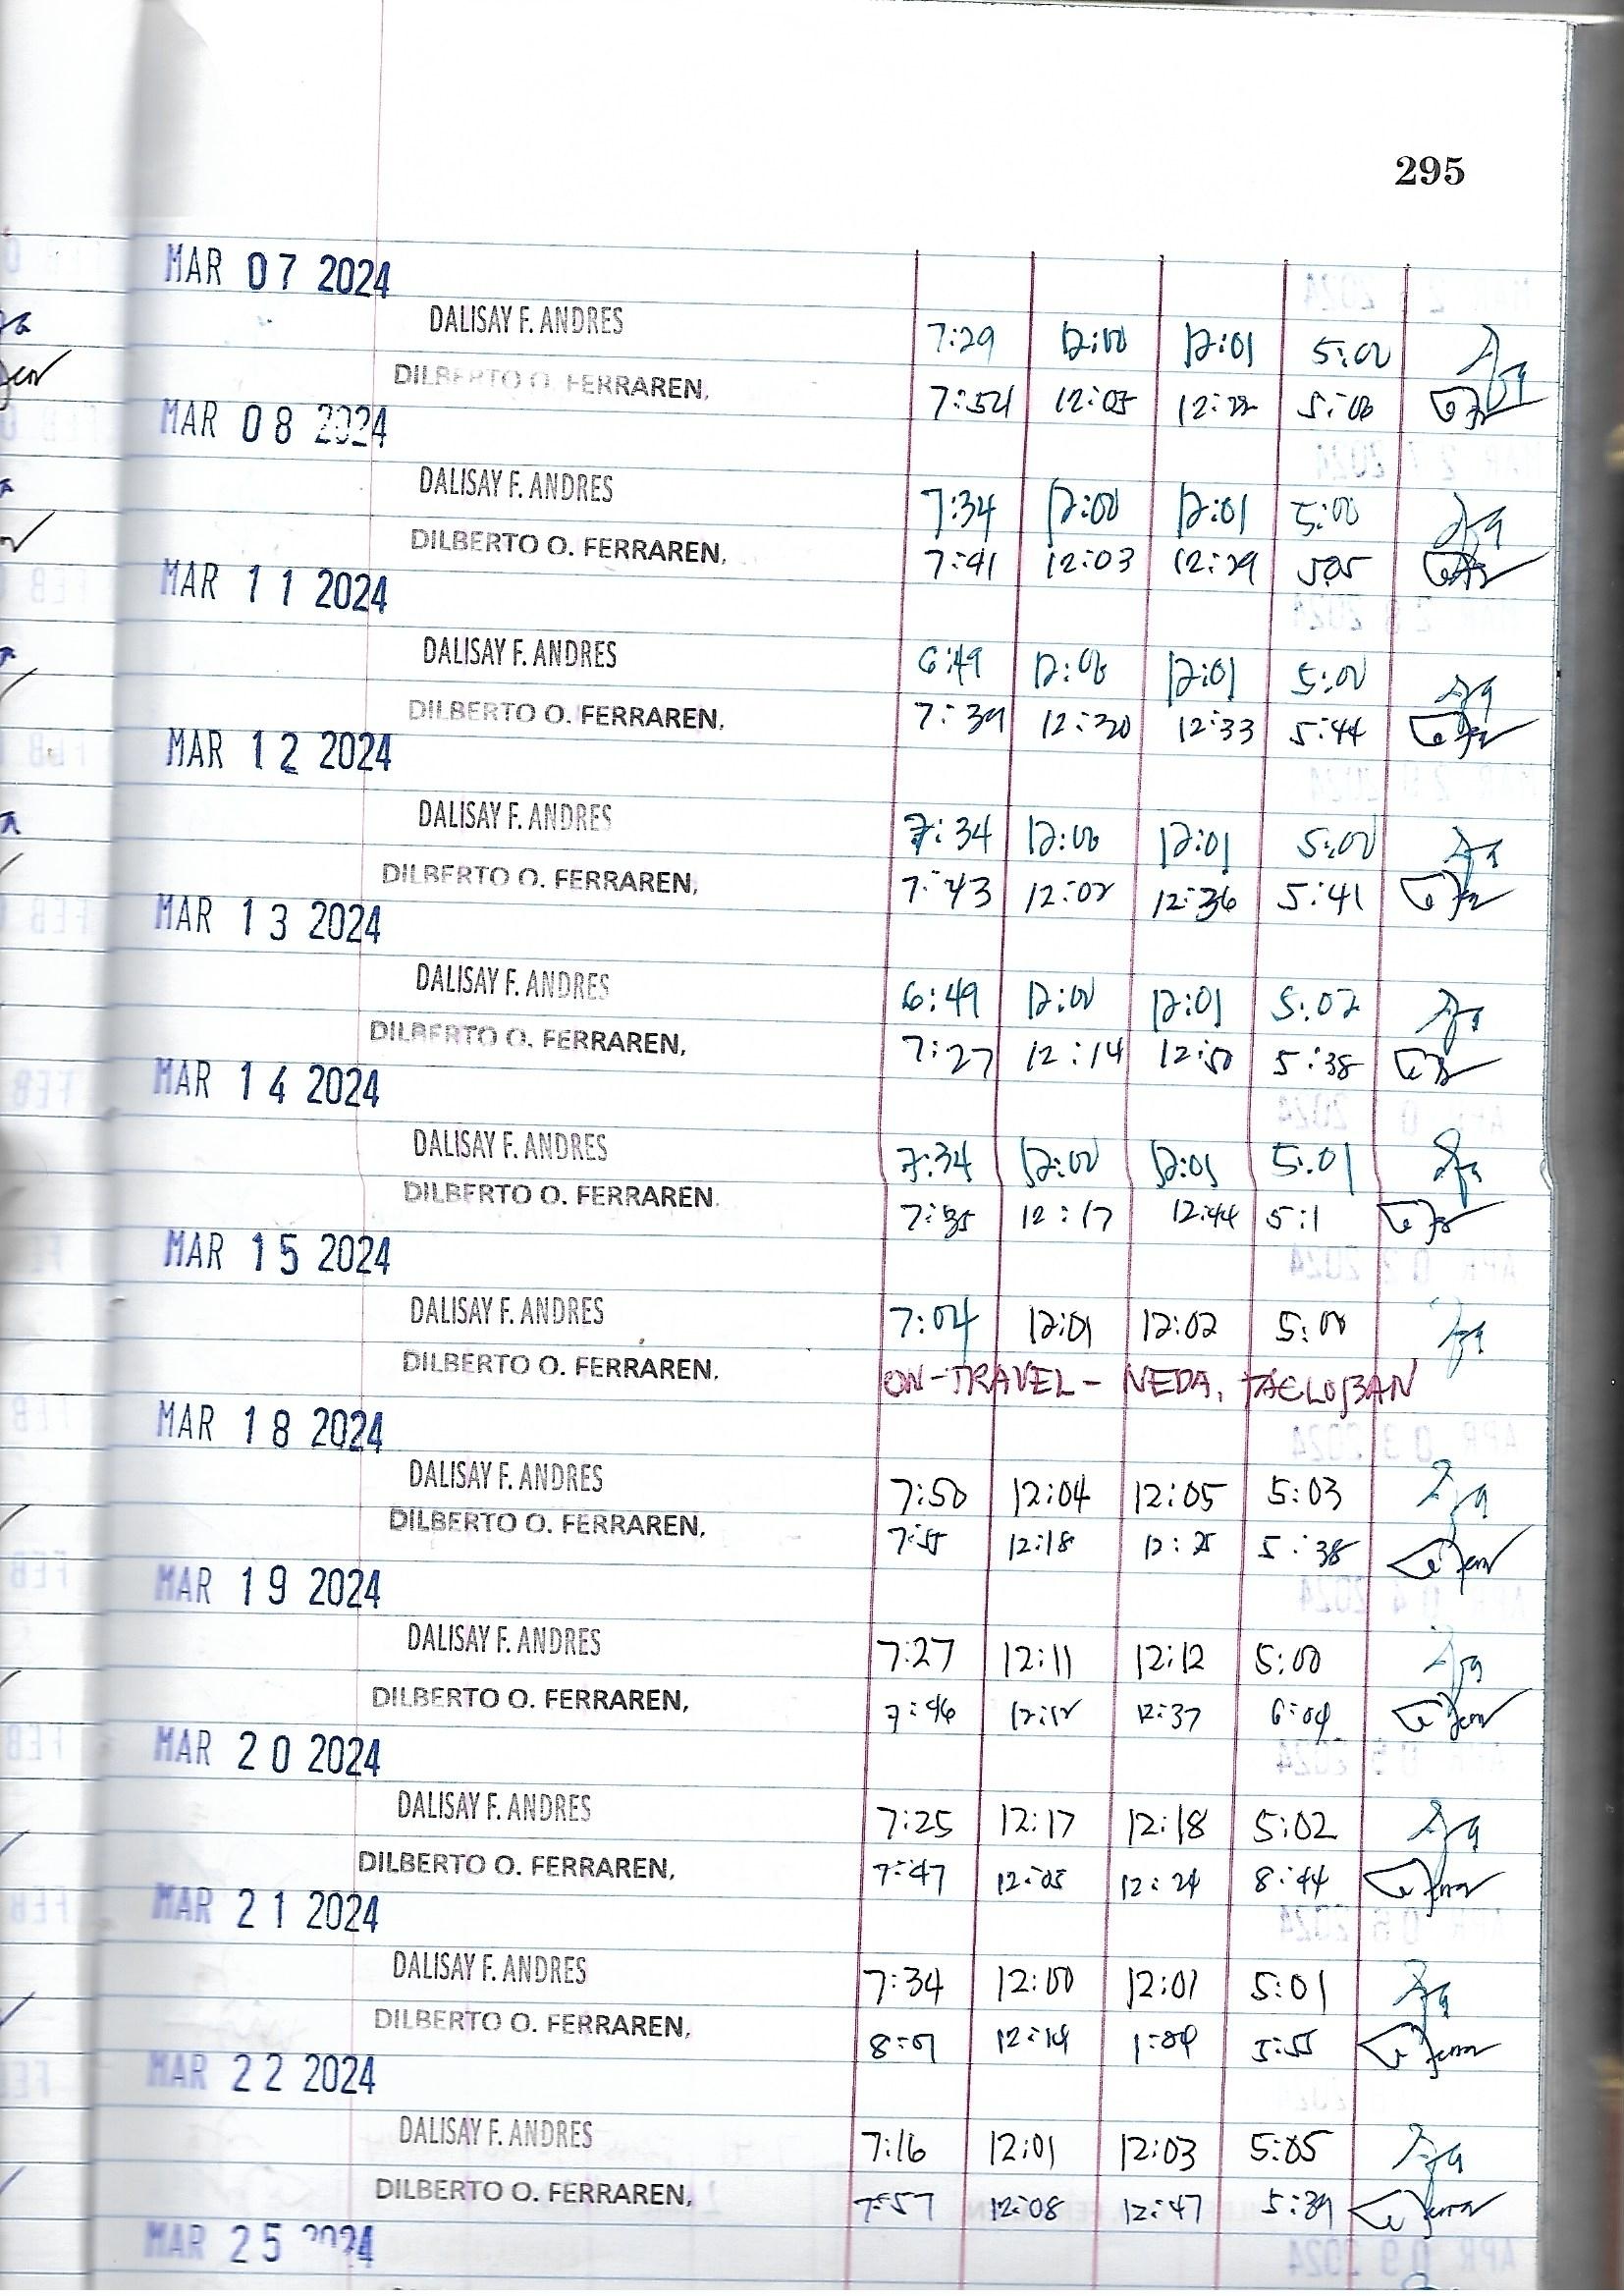 295
MAR 07 2024
DALISAY F. ANDRES 7:29 12:00 12:01 5:00
DILBERTO O. FERRAREN, 7:54 12:05 12:22 5:06
MAR 08 2024
DALISAY F. ANDRES 7:34 12:00 12:01 5:00
DILBERTO O. FERRAREN, 7:41 12:03 12:29 5:05
MAR 11 2024
DALISAY F. ANDRES 6:49 12:00 12:01 5:00
DILBERTO O. FERRAREN, 7:39 12:30 12:33 5:44
MAR 12 2024
DALISAY F. ANDRES 7:34 12:00 12:01 5:00
DILBERTO O. FERRAREN, 7:43 12:02 12:36 5:41
MAR 13 2024
DALISAY F. ANDRES 6:49 12:00 12:01 5:02
DILBERTO O. FERRAREN, 7:27 12:14 12:50 5:38
MAR 14 2024
DALISAY F. ANDRES 7:34 12:00 12:01 5:01
DILBERTO O. FERRAREN. 7:35 12:17 12:44 5:1
MAR 15 2024
DALISAY F. ANDRES 7:04 12:01 12:02 5:00
DILBERTO O. FERRAREN. ON-TRAVEL - NEDA, TACLOBAN
MAR 18 2024
DALISAY F. ANDRES 7:50 12:04 12:05 5:03
DILBERTO O. FERRAREN, 7:55 12:18 12:25 5:38
MAR 19 2024
DALISAY F. ANDRES 7:27 12:11 12:12 5:00
DILBERTO O. FERRAREN, 7:46 12:12 12:37 6:04
MAR 20 2024
DALISAY F. ANDRES 7:25 12:17 12:18 5:02
DILBERTO O. FERRAREN, 7:47 12:05 12:24 8:44
MAR 21 2024
DALISAY F. ANDRES 7:34 12:00 12:01 5:01
DILBERTO O. FERRAREN, 8:01 12:14 1:04 5:55
MAR 22 2024
DALISAY F. ANDRES 7:16 12:01 12:03 5:05
DILBERTO O. FERRAREN, 7:57 12:08 12:47 5:39
MAR 25 2024